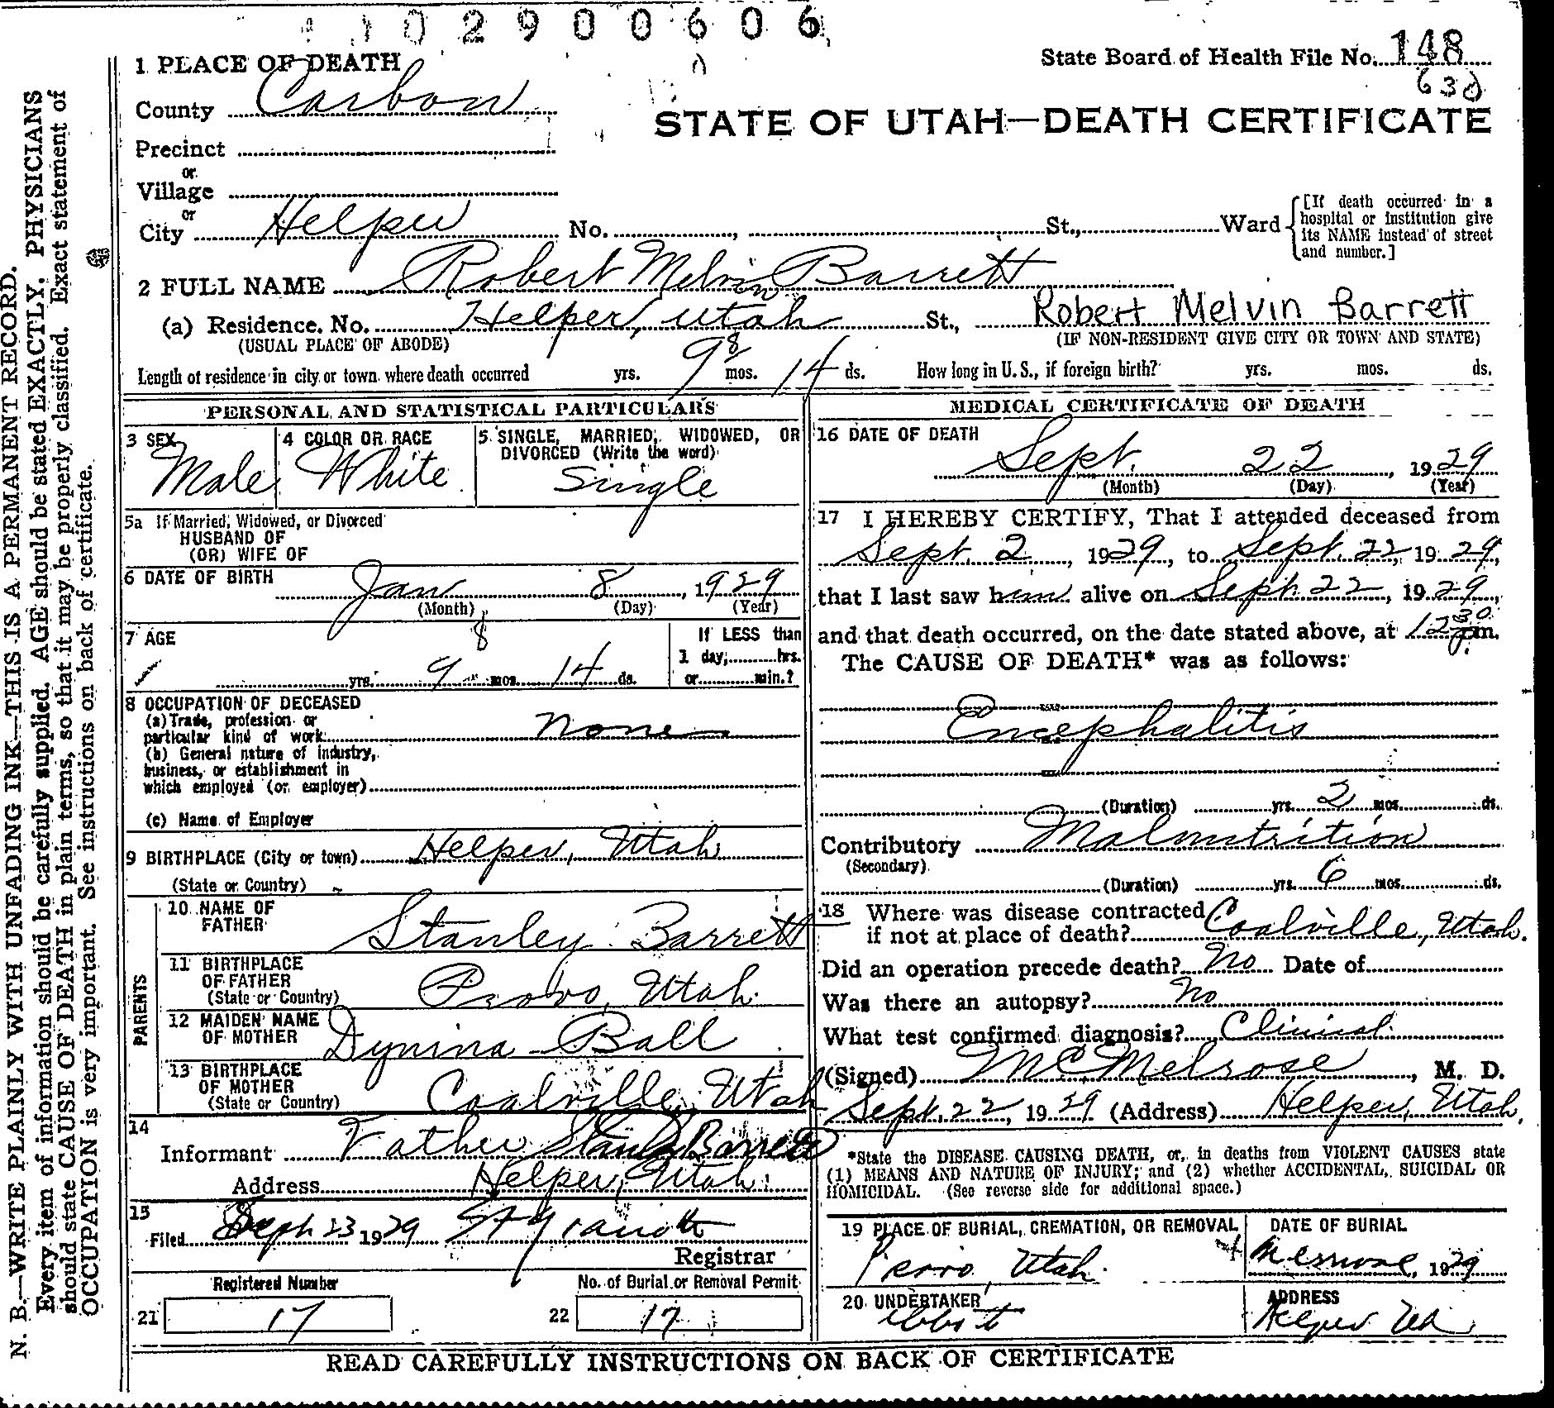 102900606
1 PLACE OF DEATH
State Board of Health File No. 148
630
County Carbon
STATE OF UTAH—DEATH CERTIFICATE
Precinct
or
Village
or
City Helper No. , St., Ward
[If death occurred in a hospital or institution give its NAME instead of street and number.]
2 FULL NAME Robert Melvin Barrett
(a) Residence. No. Helper, Utah St., Robert Melvin Barrett
(USUAL PLACE OF ABODE) (IF NON-RESIDENT GIVE CITY OR TOWN AND STATE)
Length of residence in city or town where death occurred yrs. 9 8 mos. 14 ds. How long in U.S., if foreign birth? yrs. mos. ds.
PERSONAL AND STATISTICAL PARTICULARS
3 SEX 4 COLOR OR RACE 5 SINGLE, MARRIED, WIDOWED, OR DIVORCED (Write the word)
Male White Single
5a If Married, Widowed, or Divorced
HUSBAND OF
(OR) WIFE OF
6 DATE OF BIRTH Jan 8, 1929
(Month) (Day) (Year)
7 AGE 8 If LESS than
1 day, hrs.
yrs. 9 mos. 14 ds. or min.?
8 OCCUPATION OF DECEASED
(a) Trade, profession or
particular kind of work none
(b) General nature of industry,
business, or establishment in
which employed (or employer)
(c) Name of Employer
9 BIRTHPLACE (City or town) Helper, Utah
(State or Country)
PARENTS
10 NAME OF
FATHER Stanley Barrett
11 BIRTHPLACE
OF FATHER
(State or Country) Provo, Utah
12 MAIDEN NAME
OF MOTHER Dynina Ball
13 BIRTHPLACE
OF MOTHER
(State or Country) Coalville, Utah
14
Informant Father Stanley Barrett
Address Helper, Utah
15
Filed Sept 23 1929
Registrar
Registered Number No. of Burial or Removal Permit
21 17 22 17
MEDICAL CERTIFICATE OF DEATH
16 DATE OF DEATH
Sept. 22, 1929
(Month) (Day) (Year)
17 I HEREBY CERTIFY, That I attended deceased from
Sept. 2, 1929, to Sept. 22, 1929,
that I last saw him alive on Sept. 22, 1929,
and that death occurred, on the date stated above, at 12 30 p.m.
The CAUSE OF DEATH* was as follows:
Encephalitis
(Duration) yrs. 2 mos. ds.
Contributory Malnutrition
(Secondary)
(Duration) yrs. 6 mos. ds.
18 Where was disease contracted
if not at place of death? Coalville, Utah.
Did an operation precede death? No Date of
Was there an autopsy? No
What test confirmed diagnosis? Clinical
(Signed) McMelrose, M. D.
Sept. 22, 1929 (Address) Helper, Utah.
*State the DISEASE CAUSING DEATH, or, in deaths from VIOLENT CAUSES state
(1) MEANS AND NATURE OF INJURY; and (2) whether ACCIDENTAL, SUICIDAL OR
HOMICIDAL. (See reverse side for additional space.)
19 PLACE OF BURIAL, CREMATION, OR REMOVAL DATE OF BURIAL
Provo, Utah. 1929
20 UNDERTAKER ADDRESS
Helper
READ CAREFULLY INSTRUCTIONS ON BACK OF CERTIFICATE
N. B.—WRITE PLAINLY WITH UNFADING INK—THIS IS A PERMANENT RECORD.
Every item of information should be carefully supplied. AGE should be stated EXACTLY. PHYSICIANS
should state CAUSE OF DEATH in plain terms, so that it may be properly classified. Exact statement of
OCCUPATION is very important. See instructions on back of certificate.